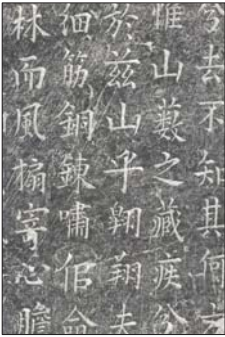 兮去不知其何
惟山藪之藏疾兮
於茲山乎翱翔
細筋銅鍊嘯侶命
林而風寄心